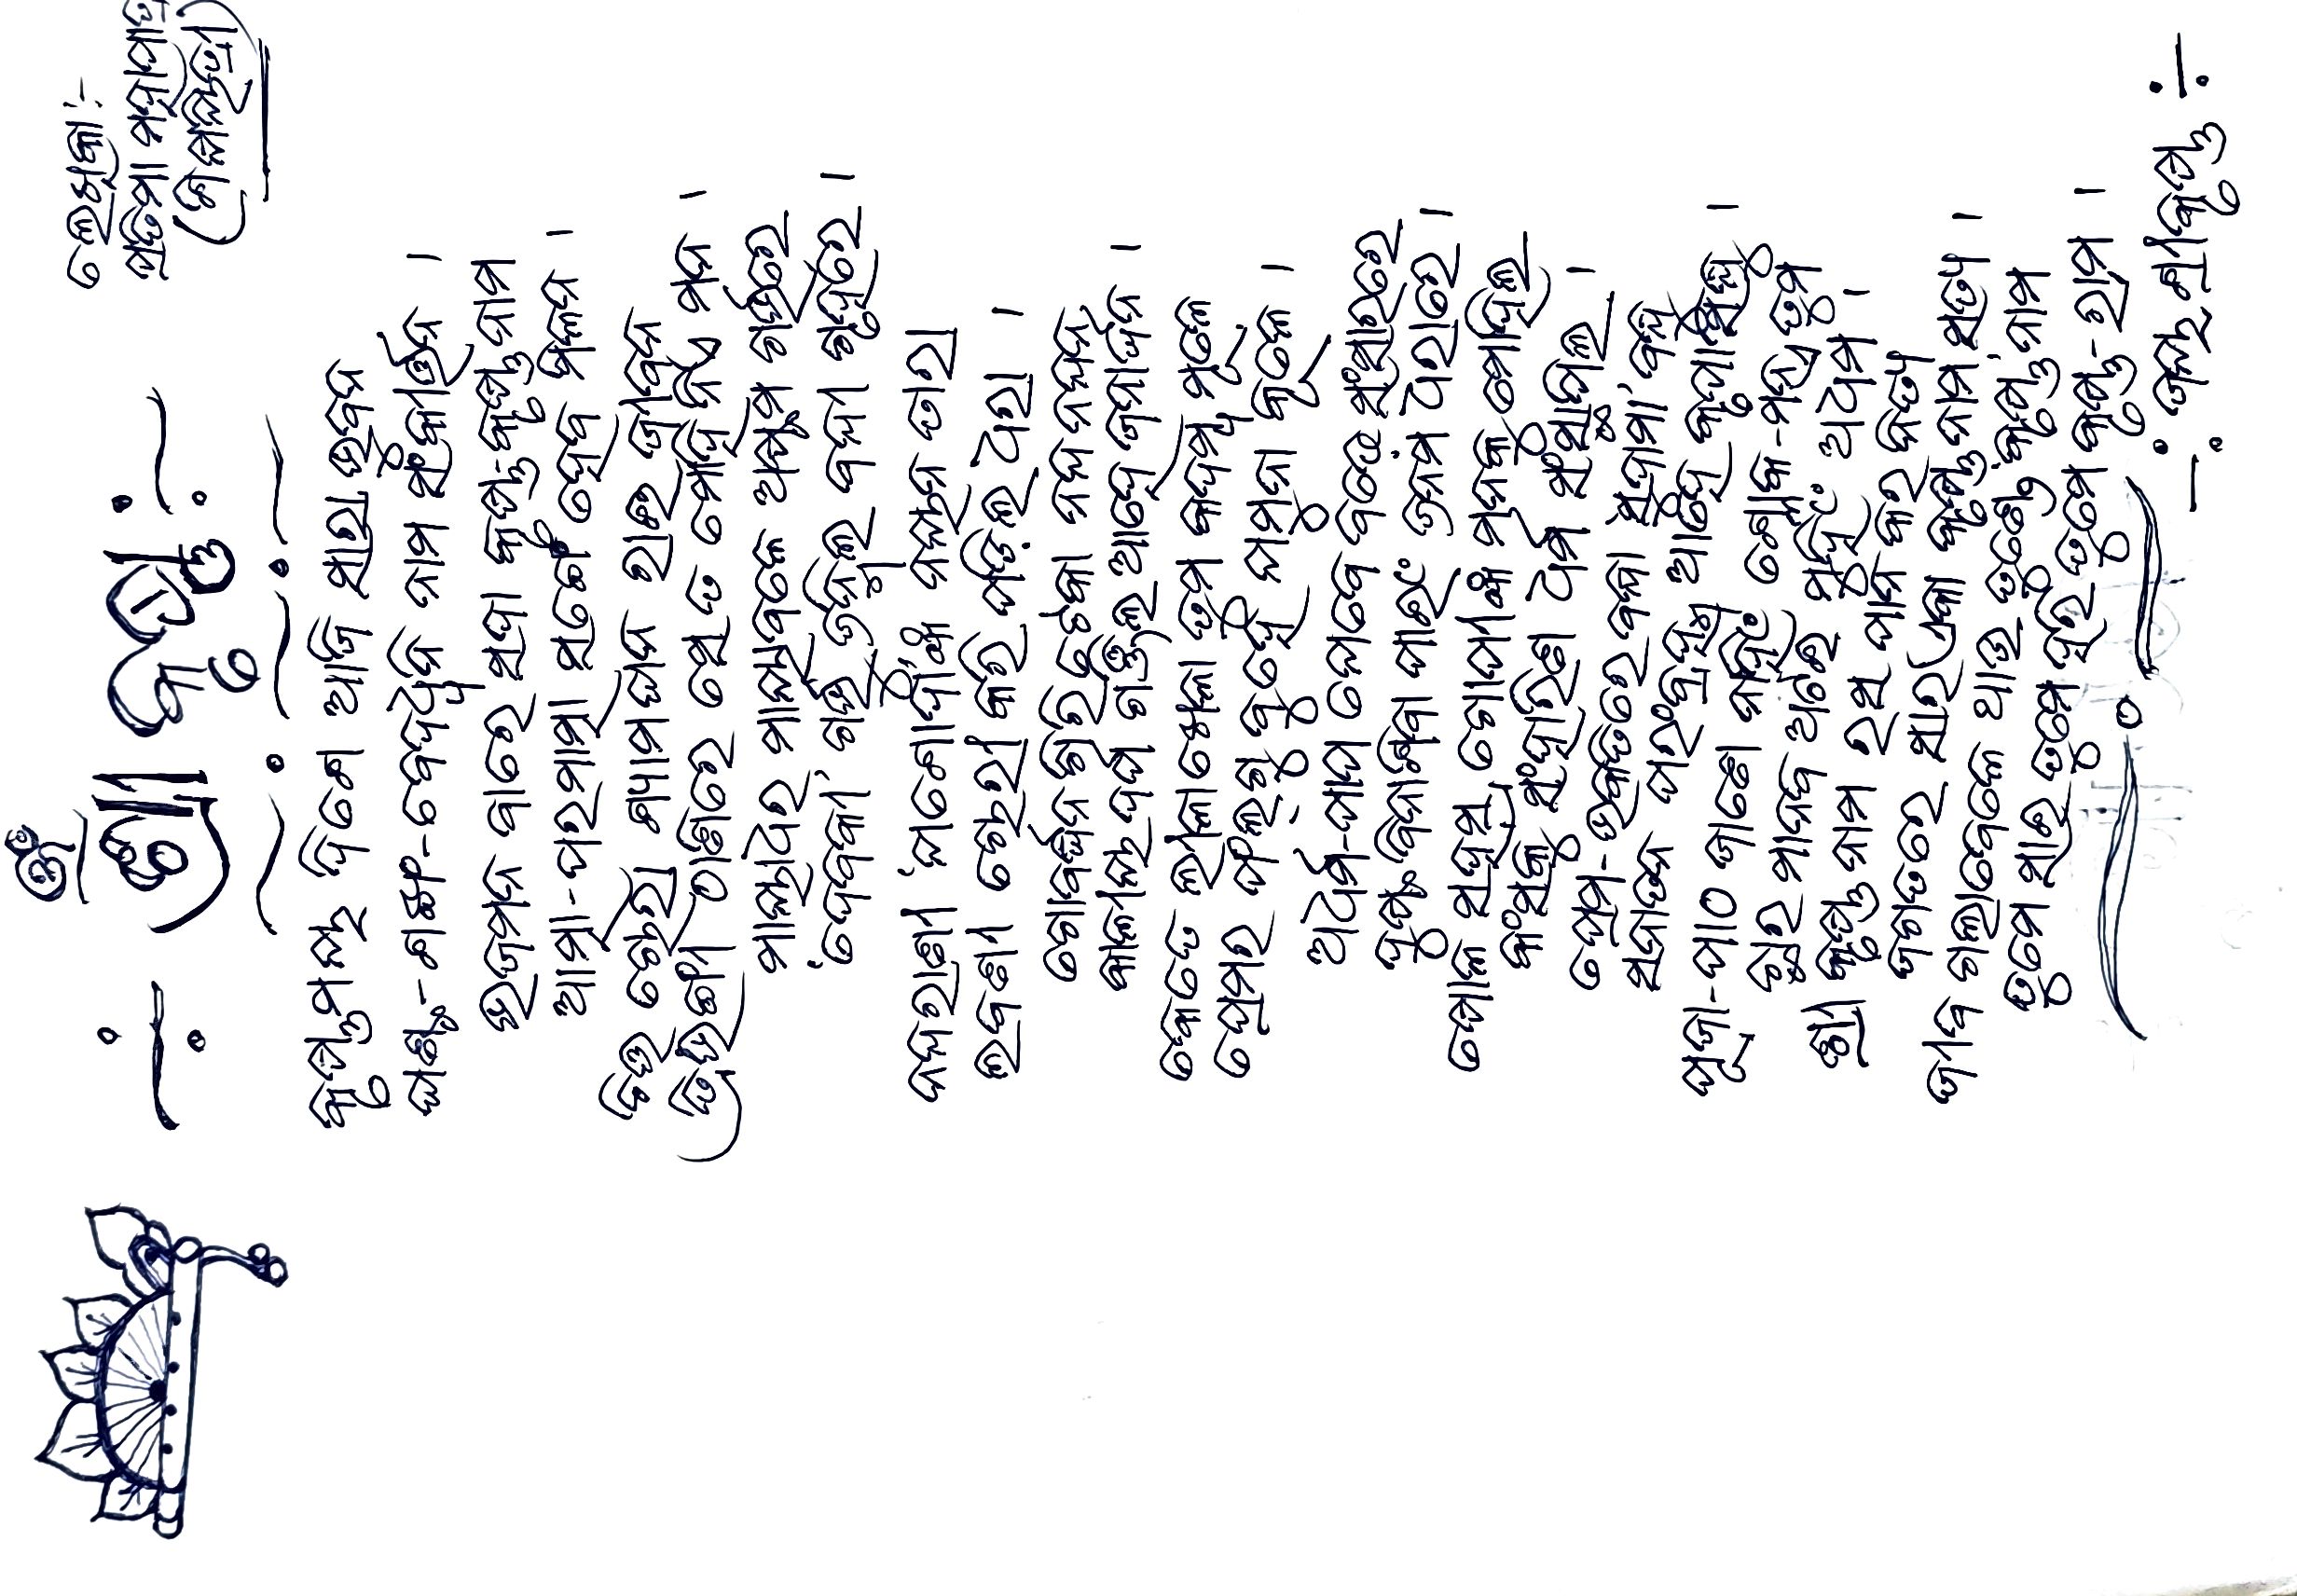 ଓଁ
ଶ୍ରୀ କୃଷ୍ଣ
ଲେଖିକା:-
ପ୍ରତିମା ମହାପାତ୍ର
(ଶିକ୍ଷୟିତ୍ରୀ)
କୃଷ୍ଣମୟ ଦିଶେ ଆଜି ସାରା ଭୁବନ
ଘଣ୍ଟ-ଶଙ୍ଖ-ବେଦଧ୍ୱନି ନାମ ସଂକୀର୍ତ୍ତନ ।
ଭଜମନ ବାରେ ସଦା କୃଷ୍ଣ-କୃଷ୍ଣ ନାମ
ଆତ୍ମା-ପରମାତ୍ମା ସଙ୍ଗେ ହେବ ମିଳନ ।
ଚିତ୍ତ ଚୋରା ଶ୍ୟାମଘନ ରାଇ ଜୀବନ
ତ୍ରିଭଙ୍ଗୀ ଠାଣିରେ ସେ ତ ମୋହି ନିଏ ମନ ।
ମାୟାଧର ମାୟାବଳେ ଅଷ୍ଟମ ଗର୍ଭରେ
'ଦେବକୀ' ଗର୍ଭୁ ଜନ୍ମିଲ ବନ୍ଦୀ ଗୃହରେ ।
ନନ୍ଦରାଣୀ 'ଯଶୋଦା'ଙ୍କ ନୟନ ତାରା
ଲବଣୀ ଚୋରୀ କରି ପଡ଼ିଲ ଧରା ।
ଗୋବର୍ଦ୍ଧନ ଗିରି ଟେକା ନନ୍ଦ ନନ୍ଦନ
କାଳୀୟ ଦର୍ପ ଗଞ୍ଜିଲ ଆହେ ଜନାର୍ଦ୍ଦନ ।
କେତେ ଲୀଳା ଖେଳା ତୁମ କଦମ୍ବ ମୂଳେ
ପ୍ରେମର ଫଲ୍‌ଗୁ ବୁହେ ଯମୁନା କୂଳେ ।
ଅଧର୍ମ-ପାପ ଯେବେ ବଢ଼େ ସଂସାରରେ
ଦୁଷ୍ଟ ବିନାଶିବା ପାଇଂ ଜନମ ଧରାରେ ।
ଷୋଳ ସହସ୍ର ଗୋପୀଙ୍କ ମନକୁ ମୋହିଲ
କଂସକୁ ସଂହାରିଣ ଧର୍ମ ସଂସ୍ଥାପିଲ ।
ପ୍ରେମ-ଭକତିରେ ବନ୍ଧା 'ସୁଦାମା' ବନ୍ଧୁ
ସନାତନ ପରଂବ୍ରହ୍ମ ଆହେ କୃପାସିନ୍ଧୁ ।
ପୂଜା-ପାଠ ଜାଣେ ନାହିଂ ଶ୍ଳୋକ-ମନ୍ତ୍ର ତୁମ
ଛାର ମାନବ ଅଟଇ ମୁହିଂ ଅଧମ ।
ଶ୍ରୀ କୃଷ୍ଣ ନାମ ରସ ପାନ କର ନିତ୍ୟ
ଜଗତରେ ସାର ଏକା କୃଷ୍ଣ ନାମ ସତ୍ୟ ।
ଜୀବ ଗଲାବେଳେ ଥାଉ ତୁଣ୍ଡେ 'କୃଷ୍ଣ' ନାମ
ତୁମେ ସାଇ ତୁମେ ହରି ତୁମେ କୃଷ୍ଣ-ରାମ ।
ଜୟ ଶ୍ରୀକୃଷ୍ଣ